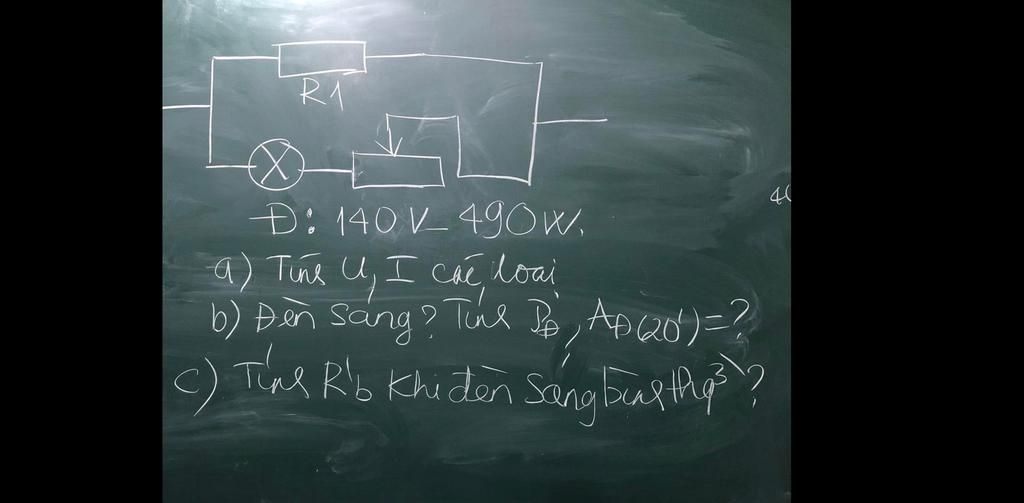 R1
X
Đ: 140V-490W.
40
a) Tính U, I các loại
b) Đèn sáng? Tính PĐ, AĐ(20')=?
c) Tính R'b khi đèn sáng bình thg?